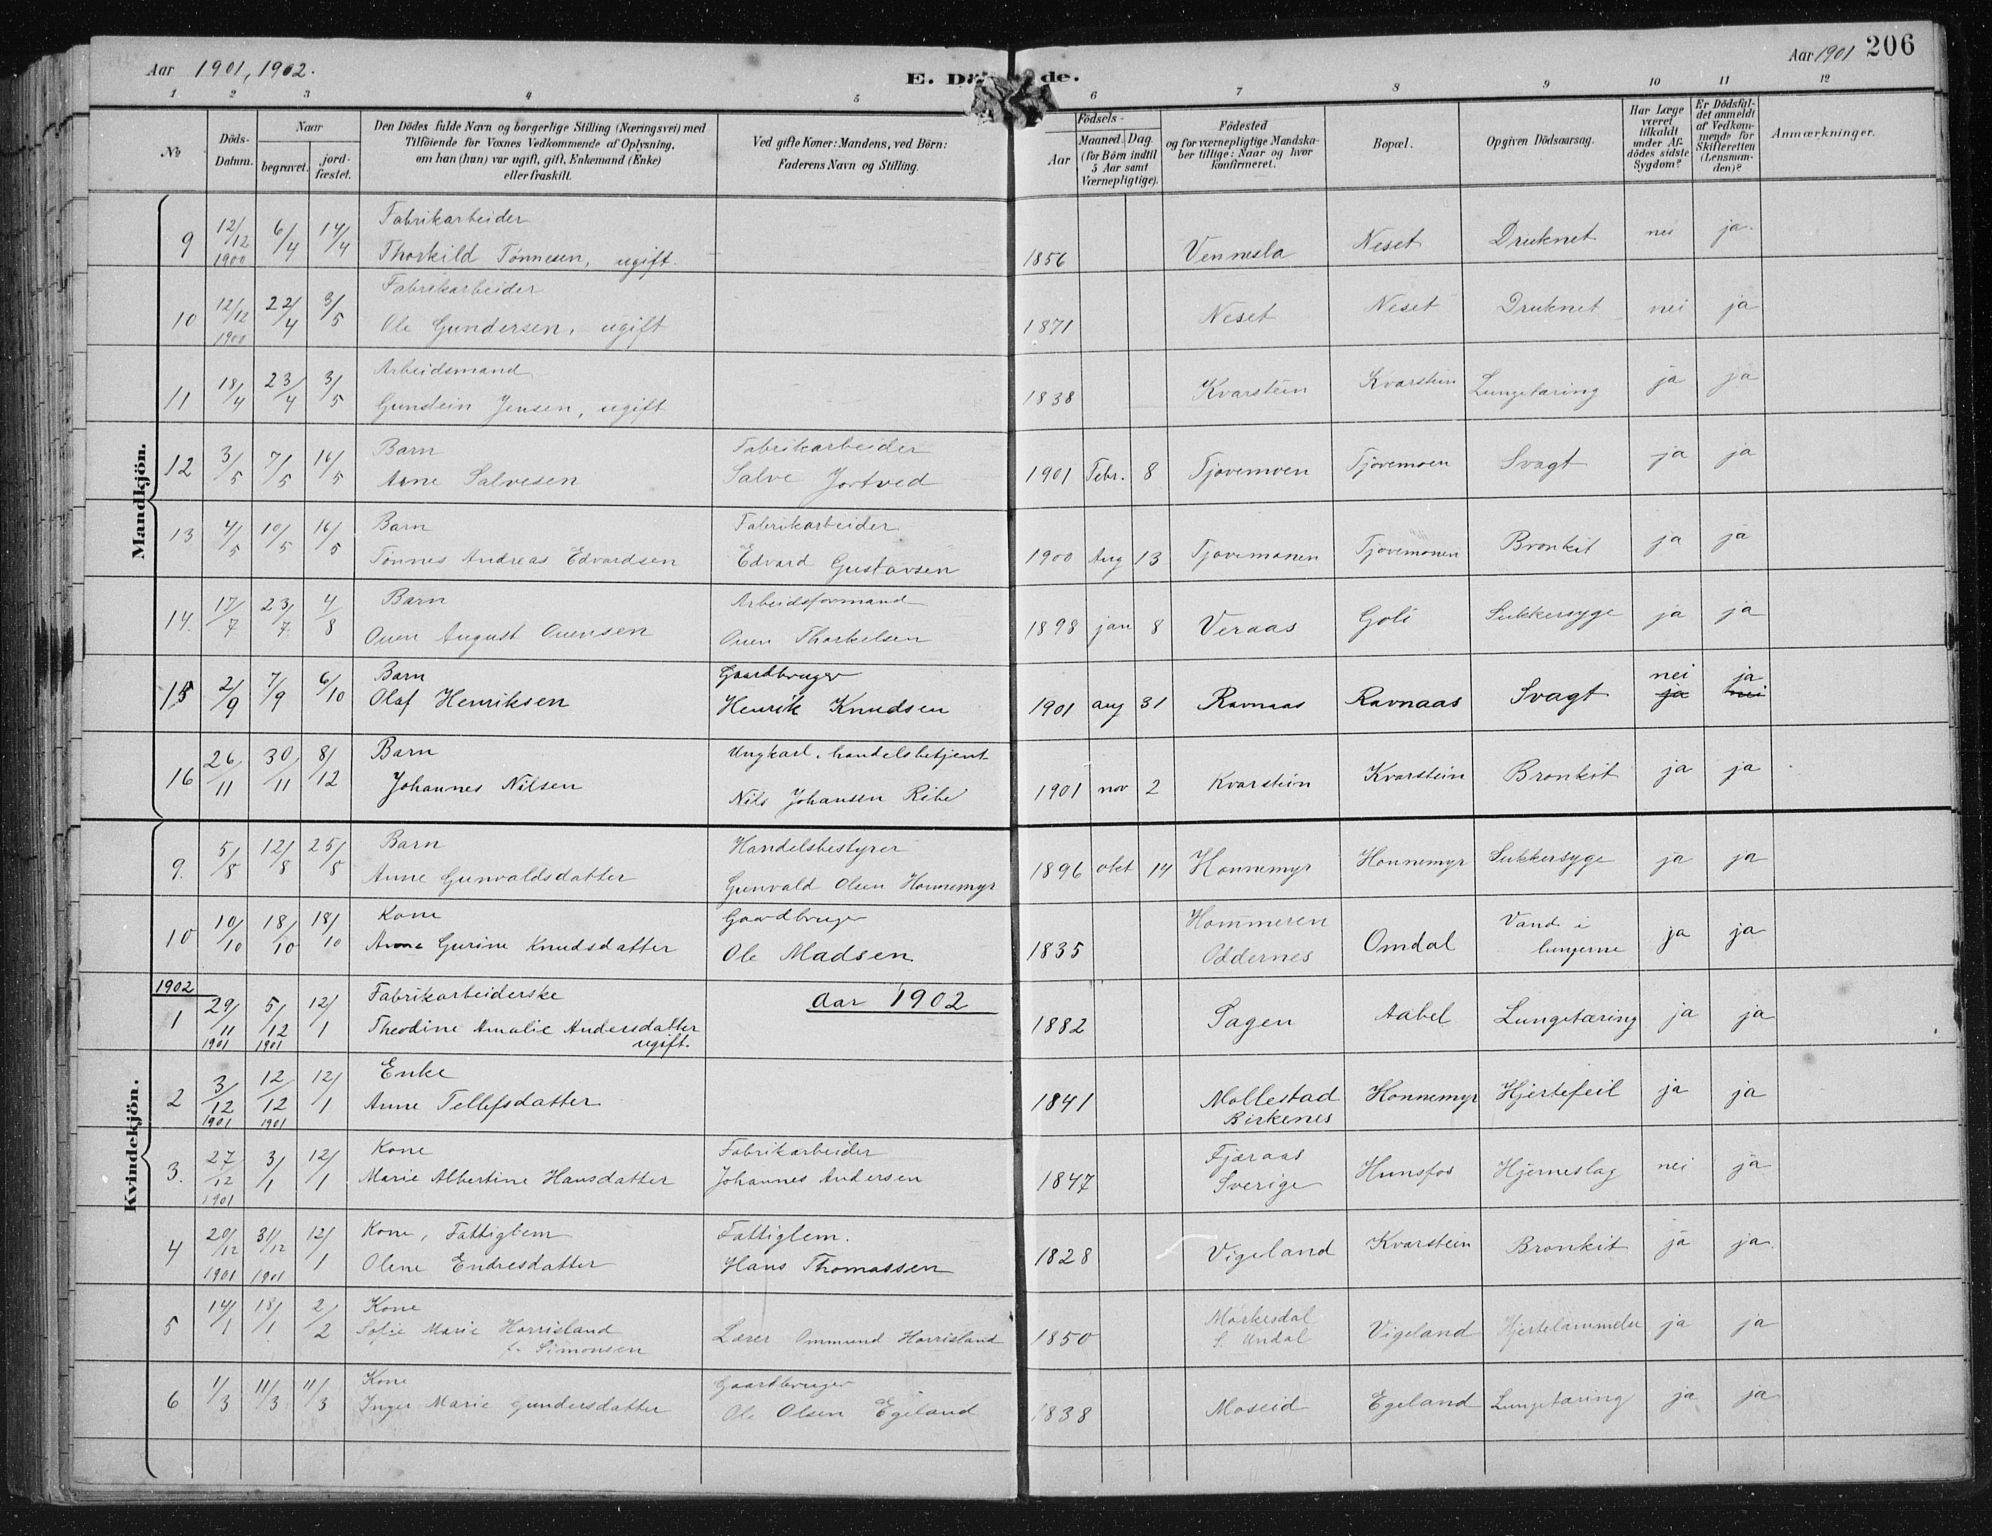 Aar 1901, 1902.
E. Dö de.
Aar 1901 206
1 2 3 4 5 6 7 8 9 10 11 12
No
Döds-Datum.
Naar
begravet.
jord-fæstet.
Den Dödes fulde Navn og borgerlige Stilling (Næringsvei) med
Tilföiende for Voxnes Vedkommende af Oplysning,
om han (hun) var ugift, gift, Enkemand (Enke)
eller fraskilt.
Ved gifte Koner: Mandens, ved Börn:
Faderens Navn og Stilling.
Födsels-
Aar
Maaned. Dag.
(for Börn indtil
5 Aar samt
Værnepligtige).
Födested
og for værnepligtige Mandska-
ber tillige: Naar og hvor
konfirmeret.
Bopæl.
Opgiven Dödsaarsag.
Har Læge
været
tilkaldt
under Af-
dödes sidste
Sygdom?
Er Dödsfal-
det anmeldt
af Vedkom-
mende for
Skifteretten
(Lensman-
den)?
Anmærkninger.
Mandkjön.
9 12/12 1900 6/4 14/4 Fabrikarbeider
Thorkild Tønnesen, ugift. 1856 Vennesla Neset Druknet nei ja.
10 12/12 1900 22/4 3/5 Fabrikarbeider
Ole Gundersen, ugift 1871 Neset Neset Druknet nei ja
11 18/4 23/4 3/5 Arbeidsmand
Gunstein Jensen, ugift 1838 Kvarstein Kvarstein Lungetæring ja ja
12 3/5 7/5 16/5 Barn Fabrikarbeider
Arne Salvesen Salve Jortved 1901 Febr. 8 Tjovemoen Tjovemoen Svagt ja ja
13 4/5 10/5 16/5 Barn Fabrikarbeider
Tønnes Andreas Edvardsen Edvard Gustavsen 1900 Aug 13 Tjovemonen Tjovemonen Bronkit ja ja
14. 17/7 23/7 4/8 Barn Arbeidsformand
Ouen August Ouensen Ouen Thorkelsen 1898 jan 8 Veraas Goli Sukkersyge ja ja
15 2/9 7/9 6/10 Barn Gaardbruger
Olaf Henriksen Henrik Knudsen 1901 aug 31 Ravnaas Ravnaas Svagt nei ja ja nei
16 26/11 30/11 8/12 Barn Ungkarl. handelsbetjent
Johannes Nilsen Nils Johansen Ribe 1901 nov 2 Kvarstein Kvarstein Bronkit ja ja
Kvindekjön.
9. 5/8 12/8 25/8 Barn Handelsbestyrer
Anne Gunvaldsdatter Gunvald Olsen Honnemyr 1896 okt 14 Honnemyr Honnemyr Sukkersyge ja ja
10 10/10 18/10 18/10 Kone Gaardbruger
Anne Gurine Knudsdatter Ole Madsen 1835 Hommeren
Oddernes Omdal Vand i
lungerne ja ja
1902
Aar 1902
1 29/11 1901 5/12 1901 12/1 Fabrikarbeiderske
Theodine Amalie Andersdatter
ugift. 1882 Sagen Aabel Lungetæring ja ja
2 3/12 1901 12/12 1901 12/1 Enke
Anne Tellefsdatter 1841 Mollestad
Birkenes Honnemyr Hjertefeil ja ja
3. 27/12 1901 3/1 12/1 Kone Fabrikarbeider
Marie Albertine Hansdatter Johannes Andersen 1847 Fjæraas
Sverige Hunsfos Hjerneslag nei ja
4 20/12 1901 31/12 1901 12/1 Kone, Fattiglem Fattiglem.
Olene Endresdatter Hans Thomassen 1828 Vigeland Kvarstein Bronkit ja ja.
5 14/1 18/1 2/2 Kone
Sofie Marie Harrisland
f. Simonsen Lærer Ommund Harrisland 1850 Mørkesdal
S. Undal Vigeland Hjertelammelse ja ja
6 1/3 11/3 11/3 Kone Gaardbruger
Inger Marie Gundersdatter Ole Olsen Egeland 1838 Moseid Egeland Lungetæring ja ja